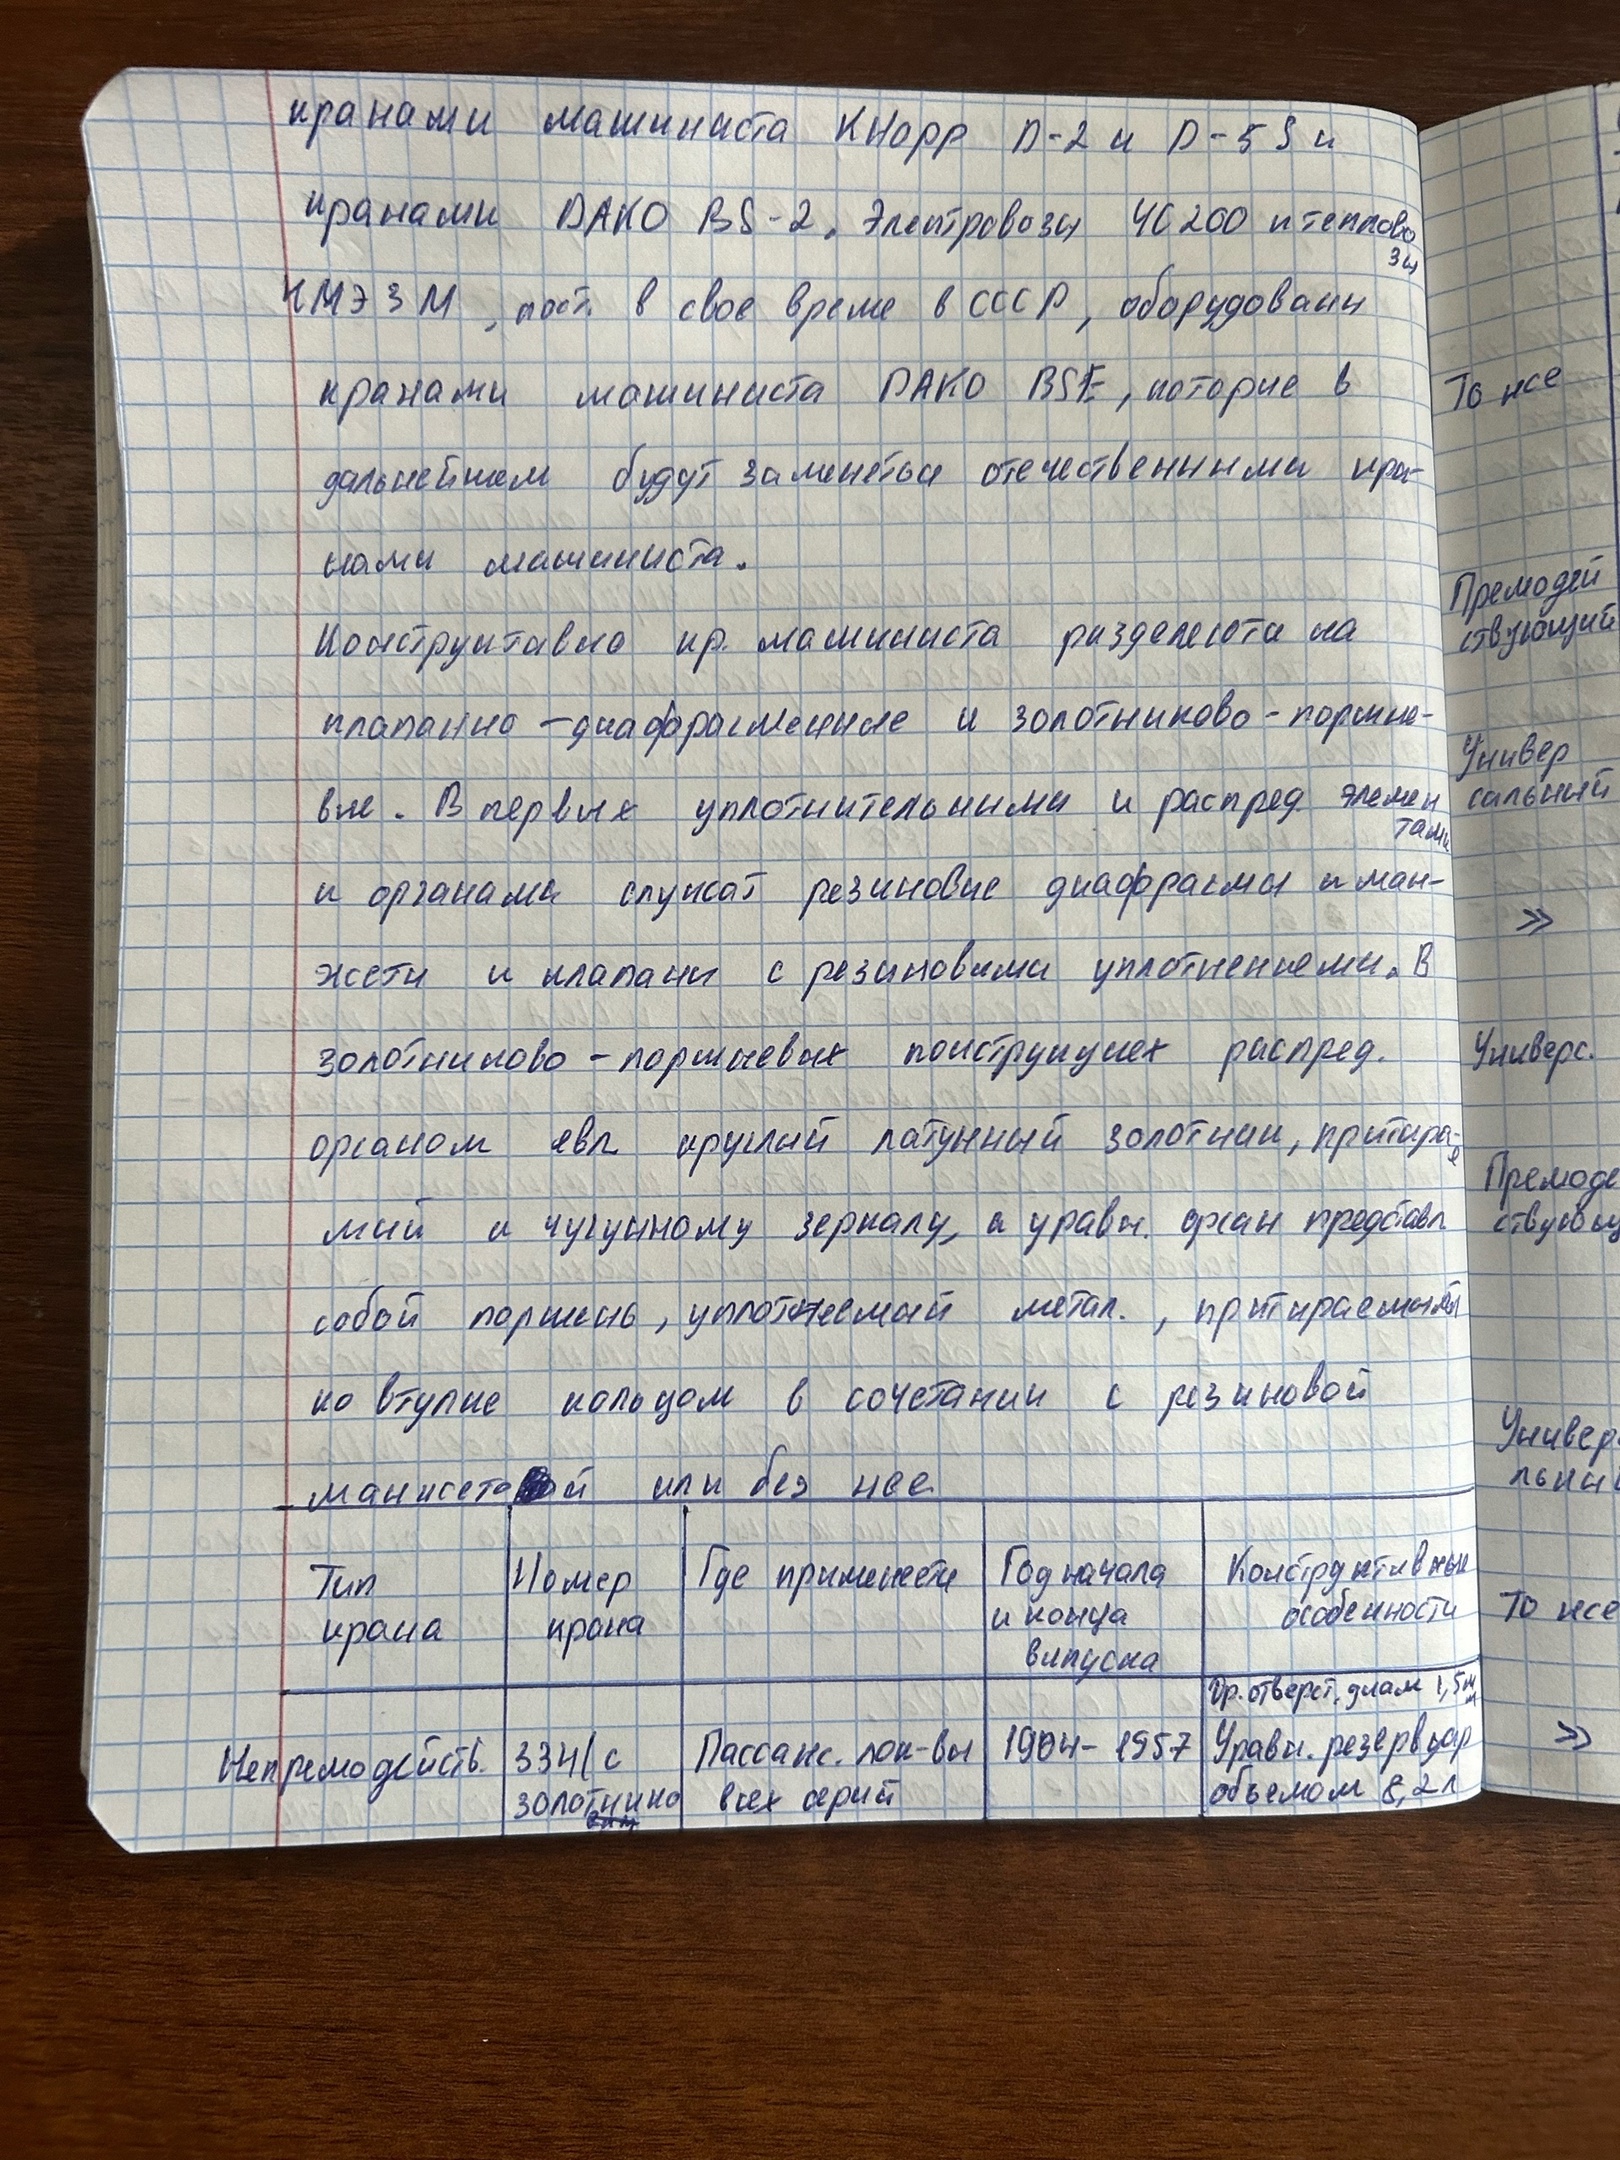 кранами машиниста Кнорр D-2 и D-5S и
кранами DAKO BS-2. Электровозы ЧС200 и теплово
зы
ЧМЭ3М, пост. в свое време в СССР, оборудованы
кранами машиниста DAKO BSE, которые в
дальнейшем будут заменеться отечественными кра-
нами машиниста.
Конструктивно кр. машиниста разделеются на
клапанно-диафрагменные и золотниково-поршне-
вые. В первых уплотнительными и распред. элемен
тами
и органами служат резиновые диафрагмы и ман-
жеты и клапаны с резиновыми уплотнениеми. В
золотниково-поршневых конструкциех распред.
органом явл круглый латунный золотник, притирае-
мый к чугунному зеркалу, а уравн. орган представл
собой поршень, уплотнеемый метал., притираемым
ко втулке кольцом в сочетании с резиновой
манжетой или без нее
Тип крана
Номер крана
Где применеется
Год начала и конца выпуска
Конструктивные особенности
Непремодейств.
334/с золотнико
Пассанж. лок-вы всех серий
1904-1957
Др. отверст. диам 1,5мм
Уравн. резервуар объемом 8,2л
То же
Премодей
ствующий
Универ
сальный
»
Универс.
Премоде
ствующ
Универ
льны
То же
»